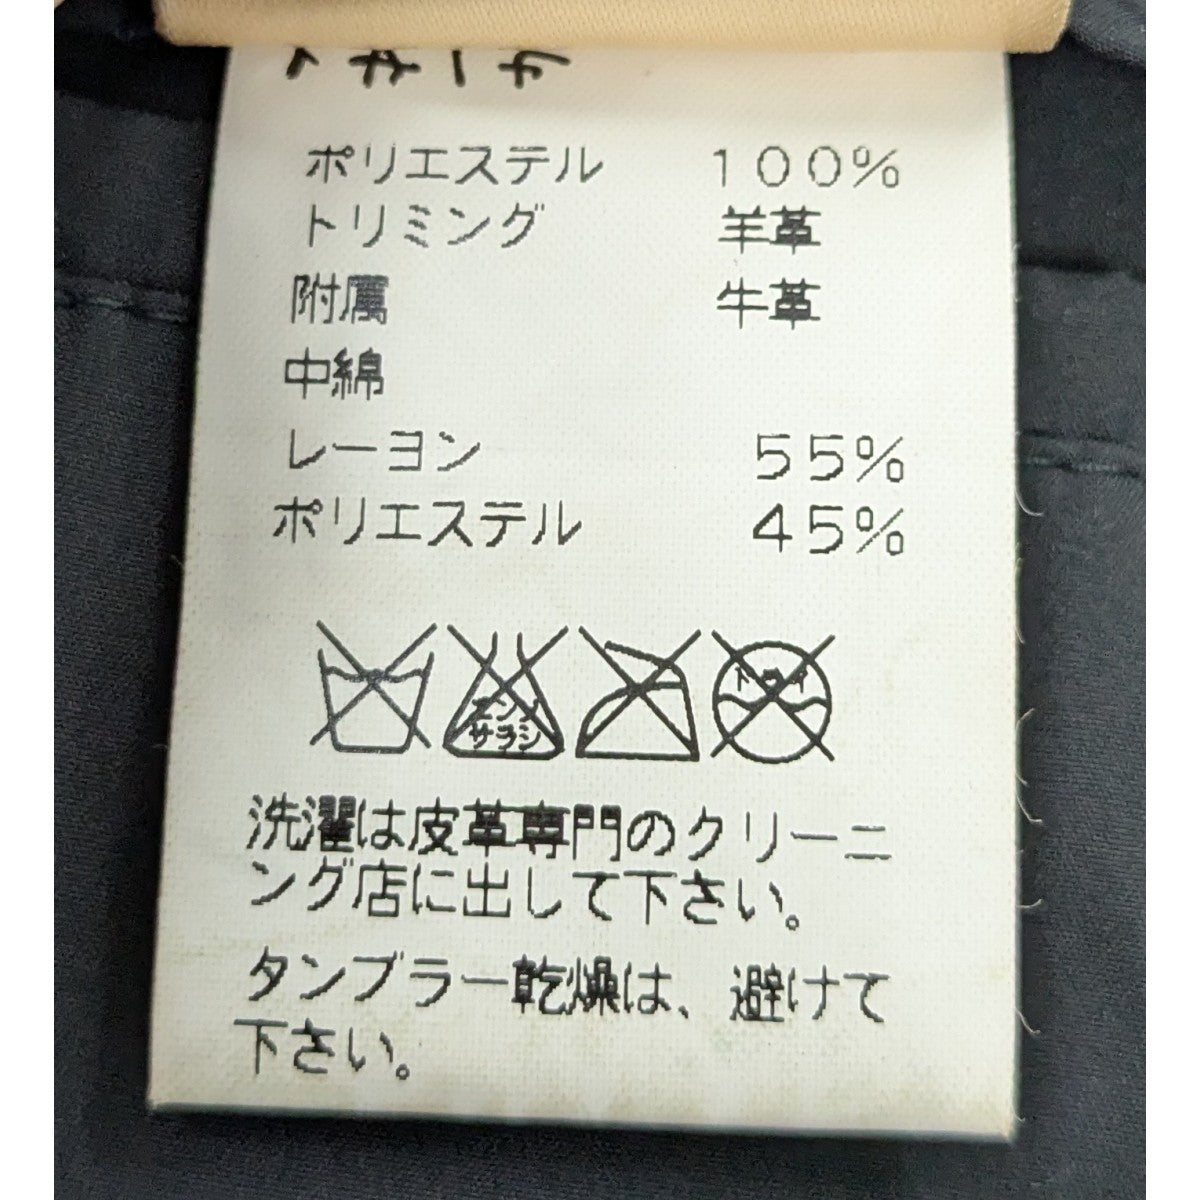 ポリエステル 100%
トリミング 羊革
附属 牛革
中綿
レーヨン 55%
ポリエステル 45%
エンソ
サラシ
ドライ
洗濯は皮革専門のクリーニ
ング店に出して下さい。
タンブラー乾燥は、避けて
下さい。